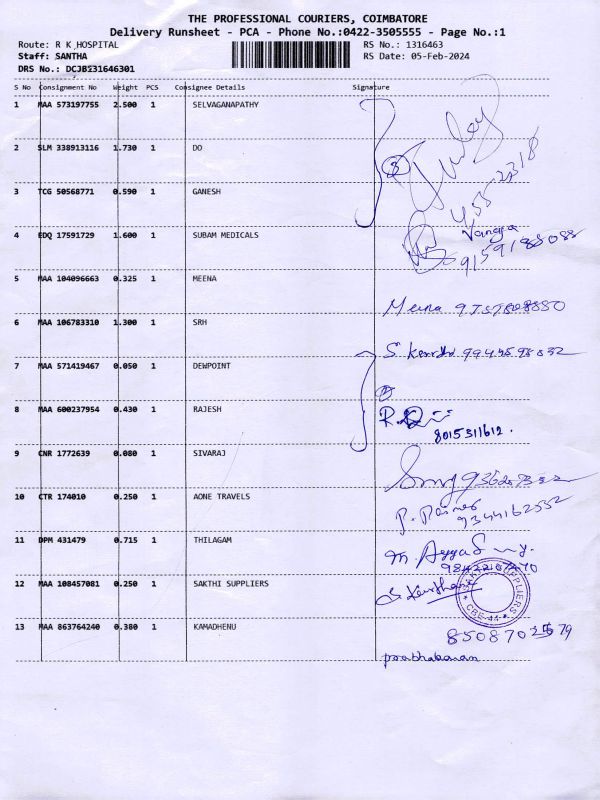 THE PROFESSIONAL COURIERS, COIMBATORE
Delivery Runsheet - PCA - Phone No.:0422-3505555 - Page No.:1
Route: R K HOSPITAL
RS No.: 1316463
Staff: SANTHA
RS Date: 05-Feb-2024
DRS No.: DCJB231646301
S No Consignment No Weight PCS Consignee Details Signature
1 MAA 573197755 2.500 1 SELVAGANAPATHY
2 SLM 338913116 1.730 1 DO
3
3 TCG 50568771 0.590 1 GANESH
4 EDQ 17591729 1.600 1 SUBAM MEDICALS
5 MAA 104096663 0.325 1 MEENA
Meena
6 MAA 106783310 1.300 1 SRH
7 MAA 571419467 0.050 1 DEWPOINT
8 MAA 600237954 0.430 1 RAJESH
8015311612.
9 CNR 1772639 0.080 1 SIVARAJ
10 CTR 174010 0.250 1 AONE TRAVELS
9344162532
11 DPM 431479 0.715 1 THILAGAM
12 MAA 108457081 0.250 1 SAKTHI SUPPLIERS
SAKTHI SUPPLIERS
CBE-44
13 MAA 863764240 0.380 1 KAMADHENU
prabhakaran